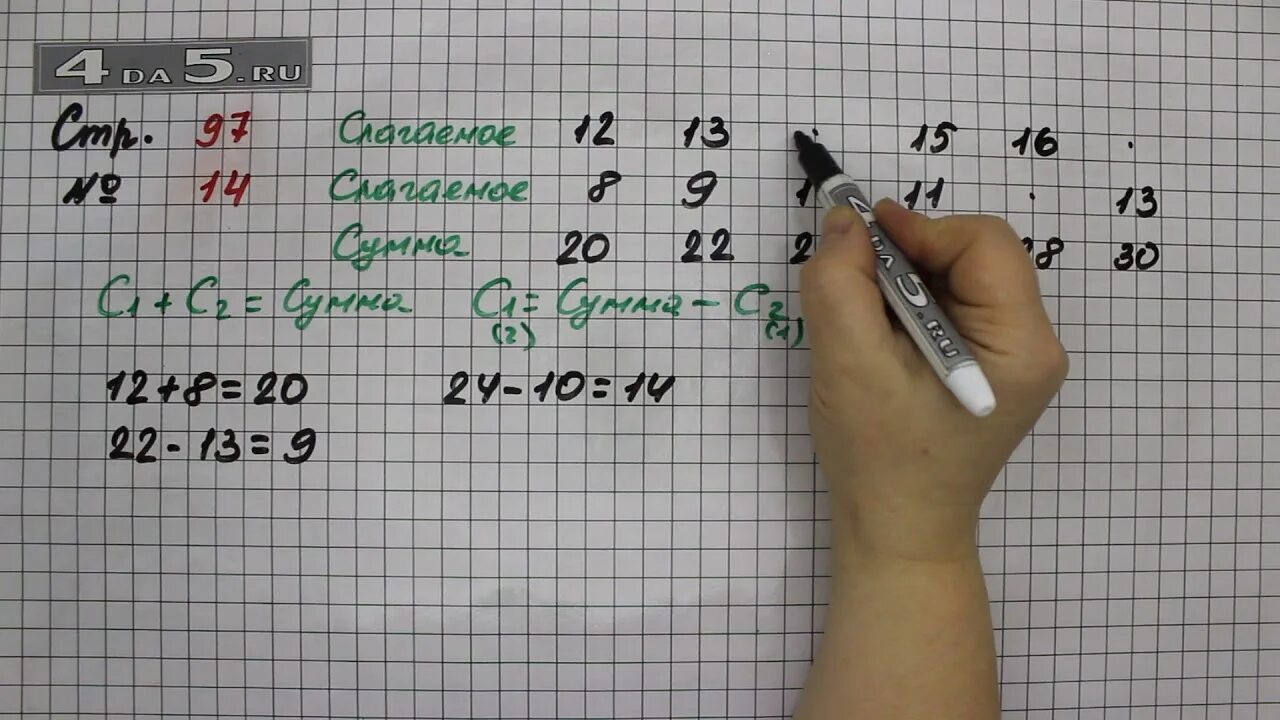 4 DA 5.RU
Стр. 97 Слагаемое 12 13 . 15 16 .
№ 14 Слагаемое 8 9 1 11 . 13
Сумма 20 22 2 8 30
С1 + С2 = Сумма С1 = Сумма - С2
(2) (1)
12+8=20 24-10=14
22-13=9
4 DA 5.RU